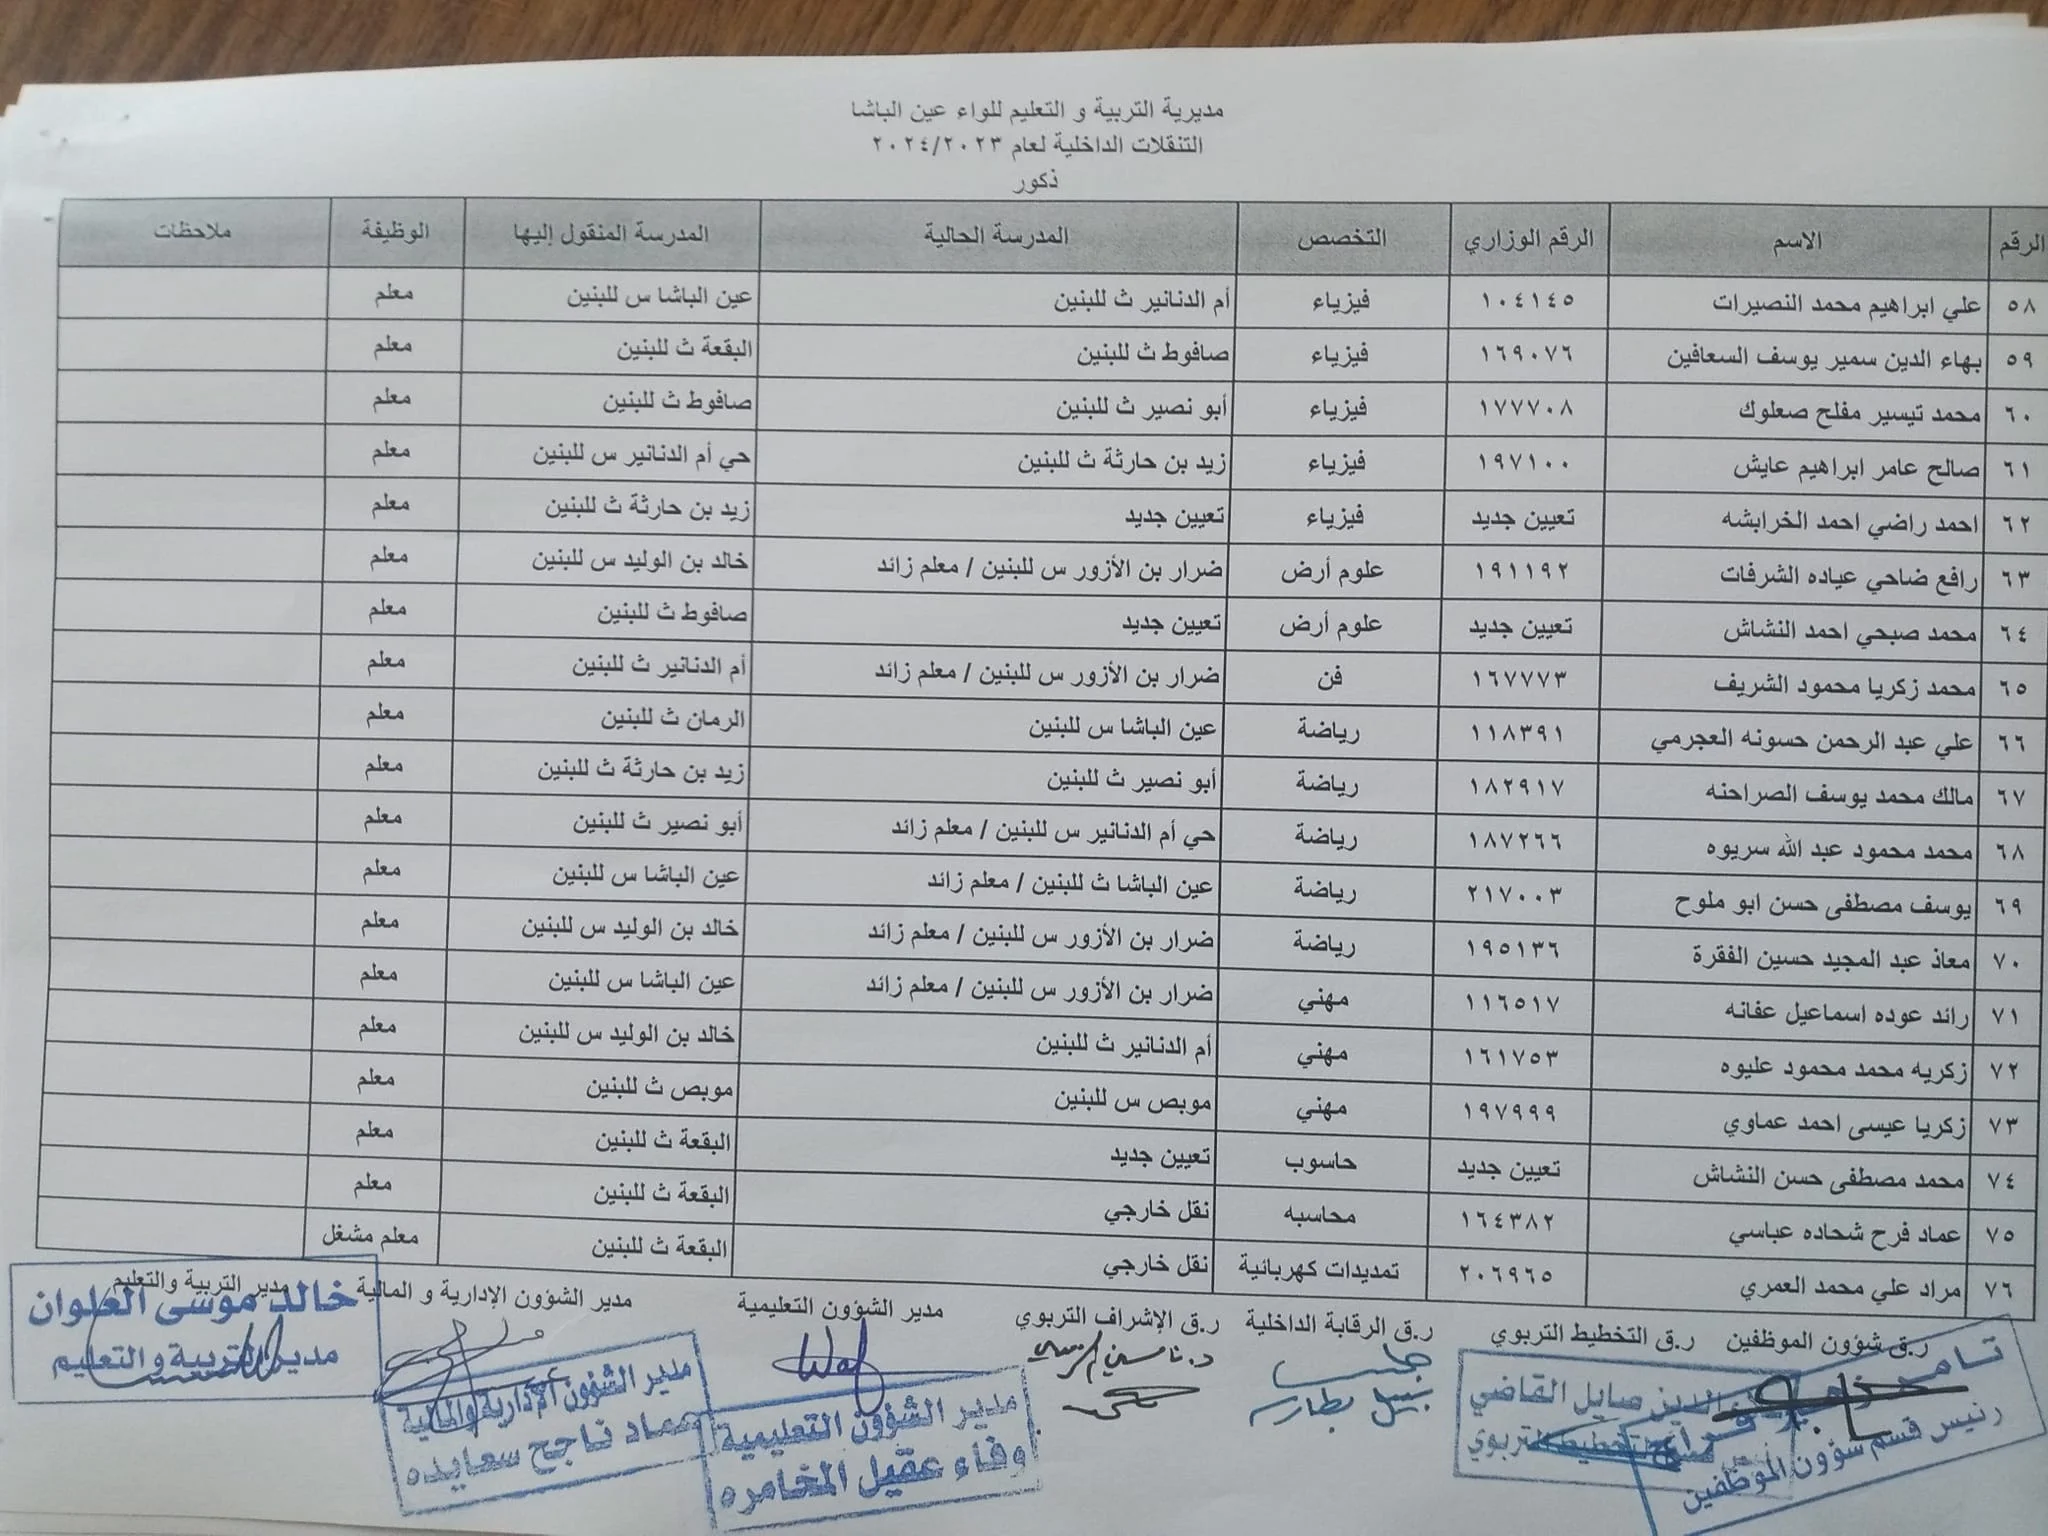 مديرية التربية و التعليم للواء عين الباشا
التنقلات الداخلية لعام ٢٠٢٤/٢٠٢٣
ذكور
الرقم الاسم الرقم الوزاري التخصص المدرسة الحالية المدرسة المنقول إليها الوظيفة ملاحظات
٥٨ علي ابراهيم محمد النصيرات ١٠٤١٤٥ فيزياء أم الدنانير ث للبنين عين الباشا س للبنين معلم
٥٩ بهاء الدين سمير يوسف السعافين ١٦٩٠٧٦ فيزياء صافوط ث للبنين البقعة ث للبنين معلم
٦٠ محمد تيسير مفلح صعلوك ١٧٧٧٠٨ فيزياء أبو نصير ث للبنين صافوط ث للبنين معلم
٦١ صالح عامر ابراهيم عايش ١٩٧١٠٠ فيزياء زيد بن حارثة ث للبنين حي أم الدنانير س للبنين معلم
٦٢ احمد راضي احمد الخرابشه تعيين جديد فيزياء تعيين جديد زيد بن حارثة ث للبنين معلم
٦٣ رافع ضاحي عياده الشرفات ١٩١١٩٢ علوم أرض ضرار بن الأزور س للبنين / معلم زائد خالد بن الوليد س للبنين معلم
٦٤ محمد صبحي احمد النشاش تعيين جديد علوم أرض تعيين جديد صافوط ث للبنين معلم
٦٥ محمد زكريا محمود الشريف ١٦٧٧٧٣ فن ضرار بن الأزور س للبنين / معلم زائد أم الدنانير ث للبنين معلم
٦٦ علي عبد الرحمن حسونه العجرمي ١١٨٣٩١ رياضة عين الباشا س للبنين الرمان ث للبنين معلم
٦٧ مالك محمد يوسف الصراحنه ١٨٢٩١٧ رياضة أبو نصير ث للبنين زيد بن حارثة ث للبنين معلم
٦٨ محمد محمود عبد الله سريوه ١٨٧٢٦٦ رياضة حي أم الدنانير س للبنين / معلم زائد أبو نصير ث للبنين معلم
٦٩ يوسف مصطفى حسن ابو ملوح ٢١٧٠٠٣ رياضة عين الباشا ث للبنين / معلم زائد عين الباشا س للبنين معلم
٧٠ معاذ عبد المجيد حسين الفقرة ١٩٥١٣٦ رياضة ضرار بن الأزور س للبنين / معلم زائد خالد بن الوليد س للبنين معلم
٧١ رائد عوده اسماعيل عفانه ١١٦٥١٧ مهني ضرار بن الأزور س للبنين / معلم زائد عين الباشا س للبنين معلم
٧٢ زكريه محمد محمود عليوه ١٦١٧٥٣ مهني أم الدنانير ث للبنين خالد بن الوليد س للبنين معلم
٧٣ زكريا عيسى احمد عماوي ١٩٧٩٩٩ مهني موبص س للبنين موبص ث للبنين معلم
٧٤ محمد مصطفى حسن النشاش تعيين جديد حاسوب تعيين جديد البقعة ث للبنين معلم
٧٥ عماد فرح شحاده عباسي ١٦٤٣٨٢ محاسبه نقل خارجي البقعة ث للبنين معلم
٧٦ مراد علي محمد العمري ٢٠٦٩٦٥ تمديدات كهربائية نقل خارجي البقعة ث للبنين معلم مشغل
ر.ق شؤون الموظفين ر.ق التخطيط التربوي ر.ق الرقابة الداخلية ر.ق الإشراف التربوي مدير الشؤون التعليمية مدير الشؤون الإدارية و المالية مدير التربية والتعليم
رئيس قسم شؤون الموظفين
الدين صايل القاضي
التخطيط التربوي
مدير الشؤون التعليمية
وفاء عقيل المخامره
مدير الشؤون الإدارية والمالية
عماد ناجح سعايده
خالد موسى العلوان
مدير التربية والتعليم